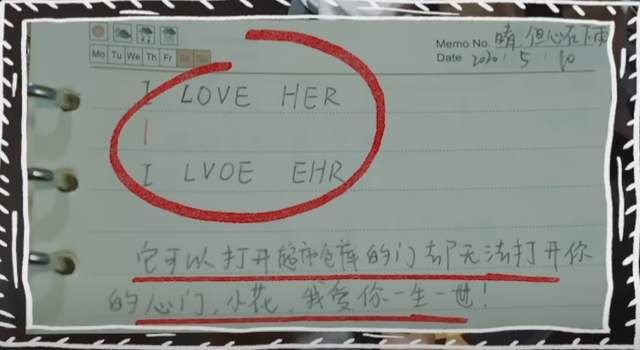 Memo No. 晴,但心在下雨
Mo Tu We Th Fr Sa Su
Date 2020 5 10
I LOVE HER
I LVOE EHR
它可以打开超市仓库的门却无法打开你
的心门,小花,我爱你一生一世!